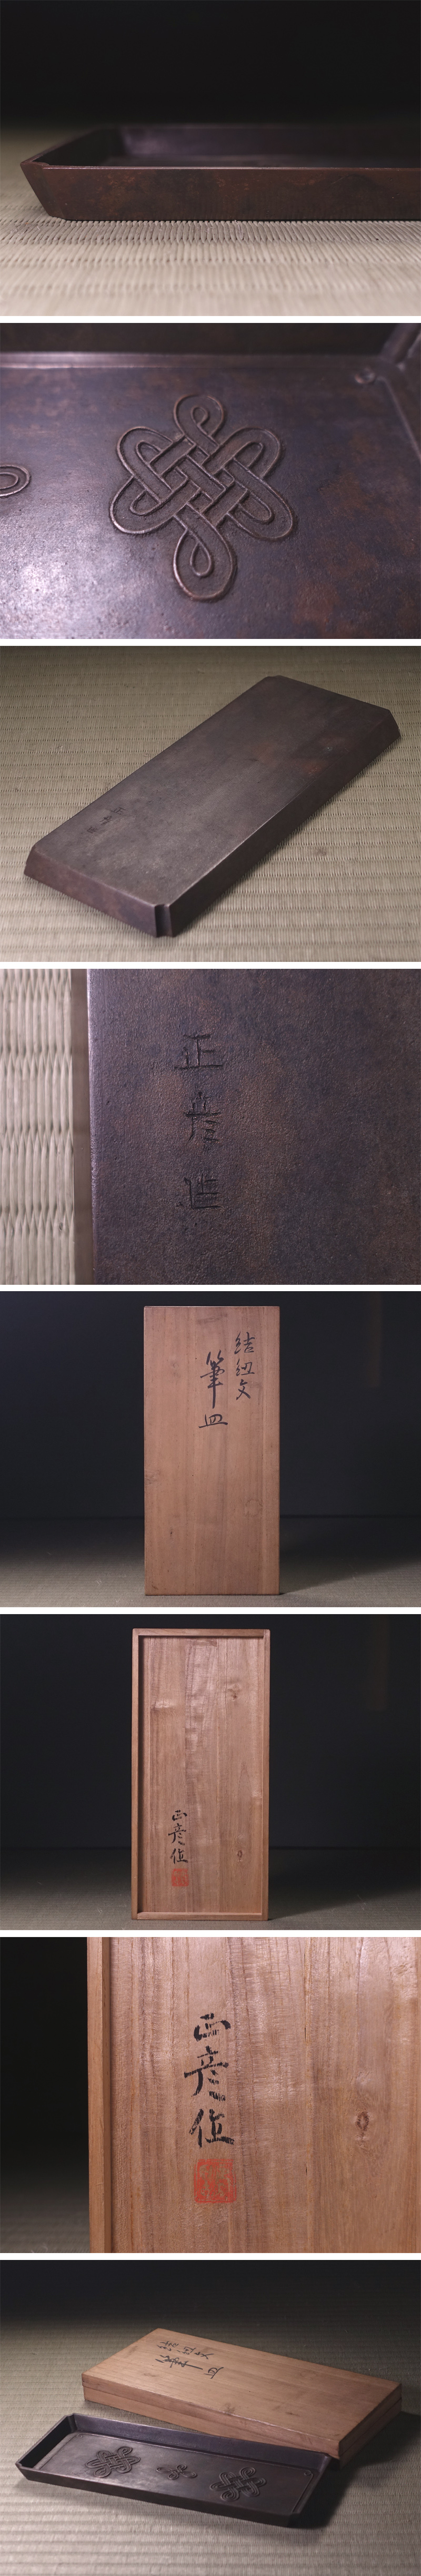 正彦造
結紐文
筆皿
正彦作
正彦作
結紐文
筆皿